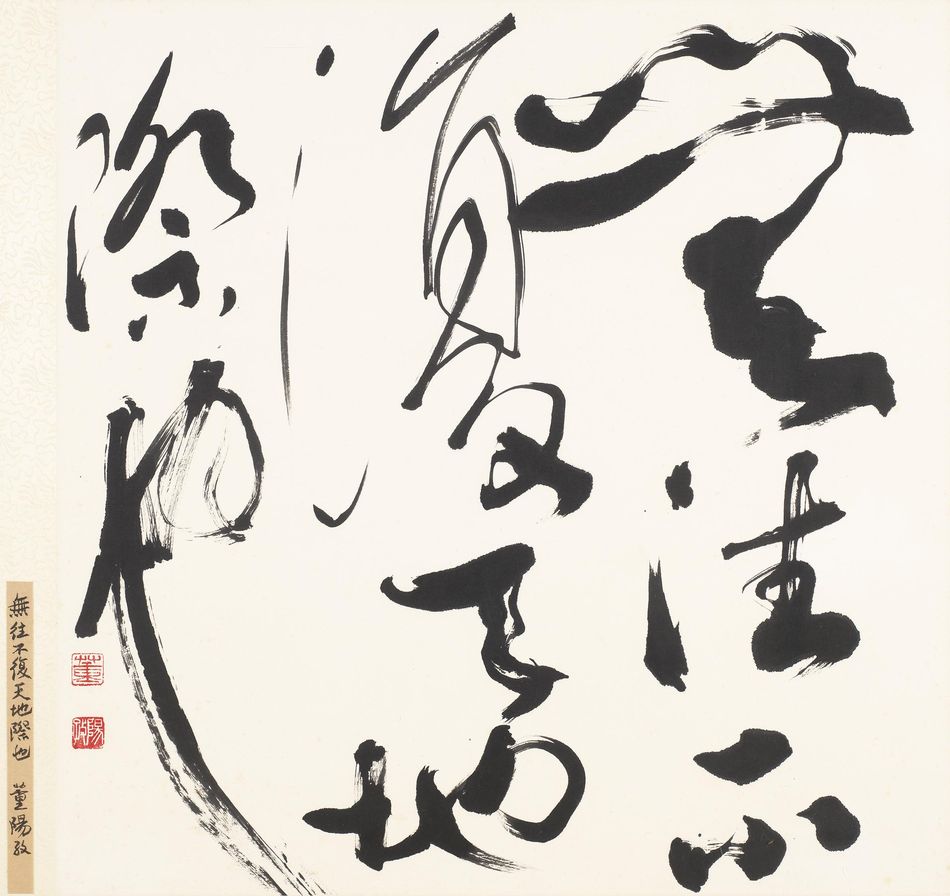 無往不
復天地
際也
董
陽孜
無往不復天地際也 董陽孜